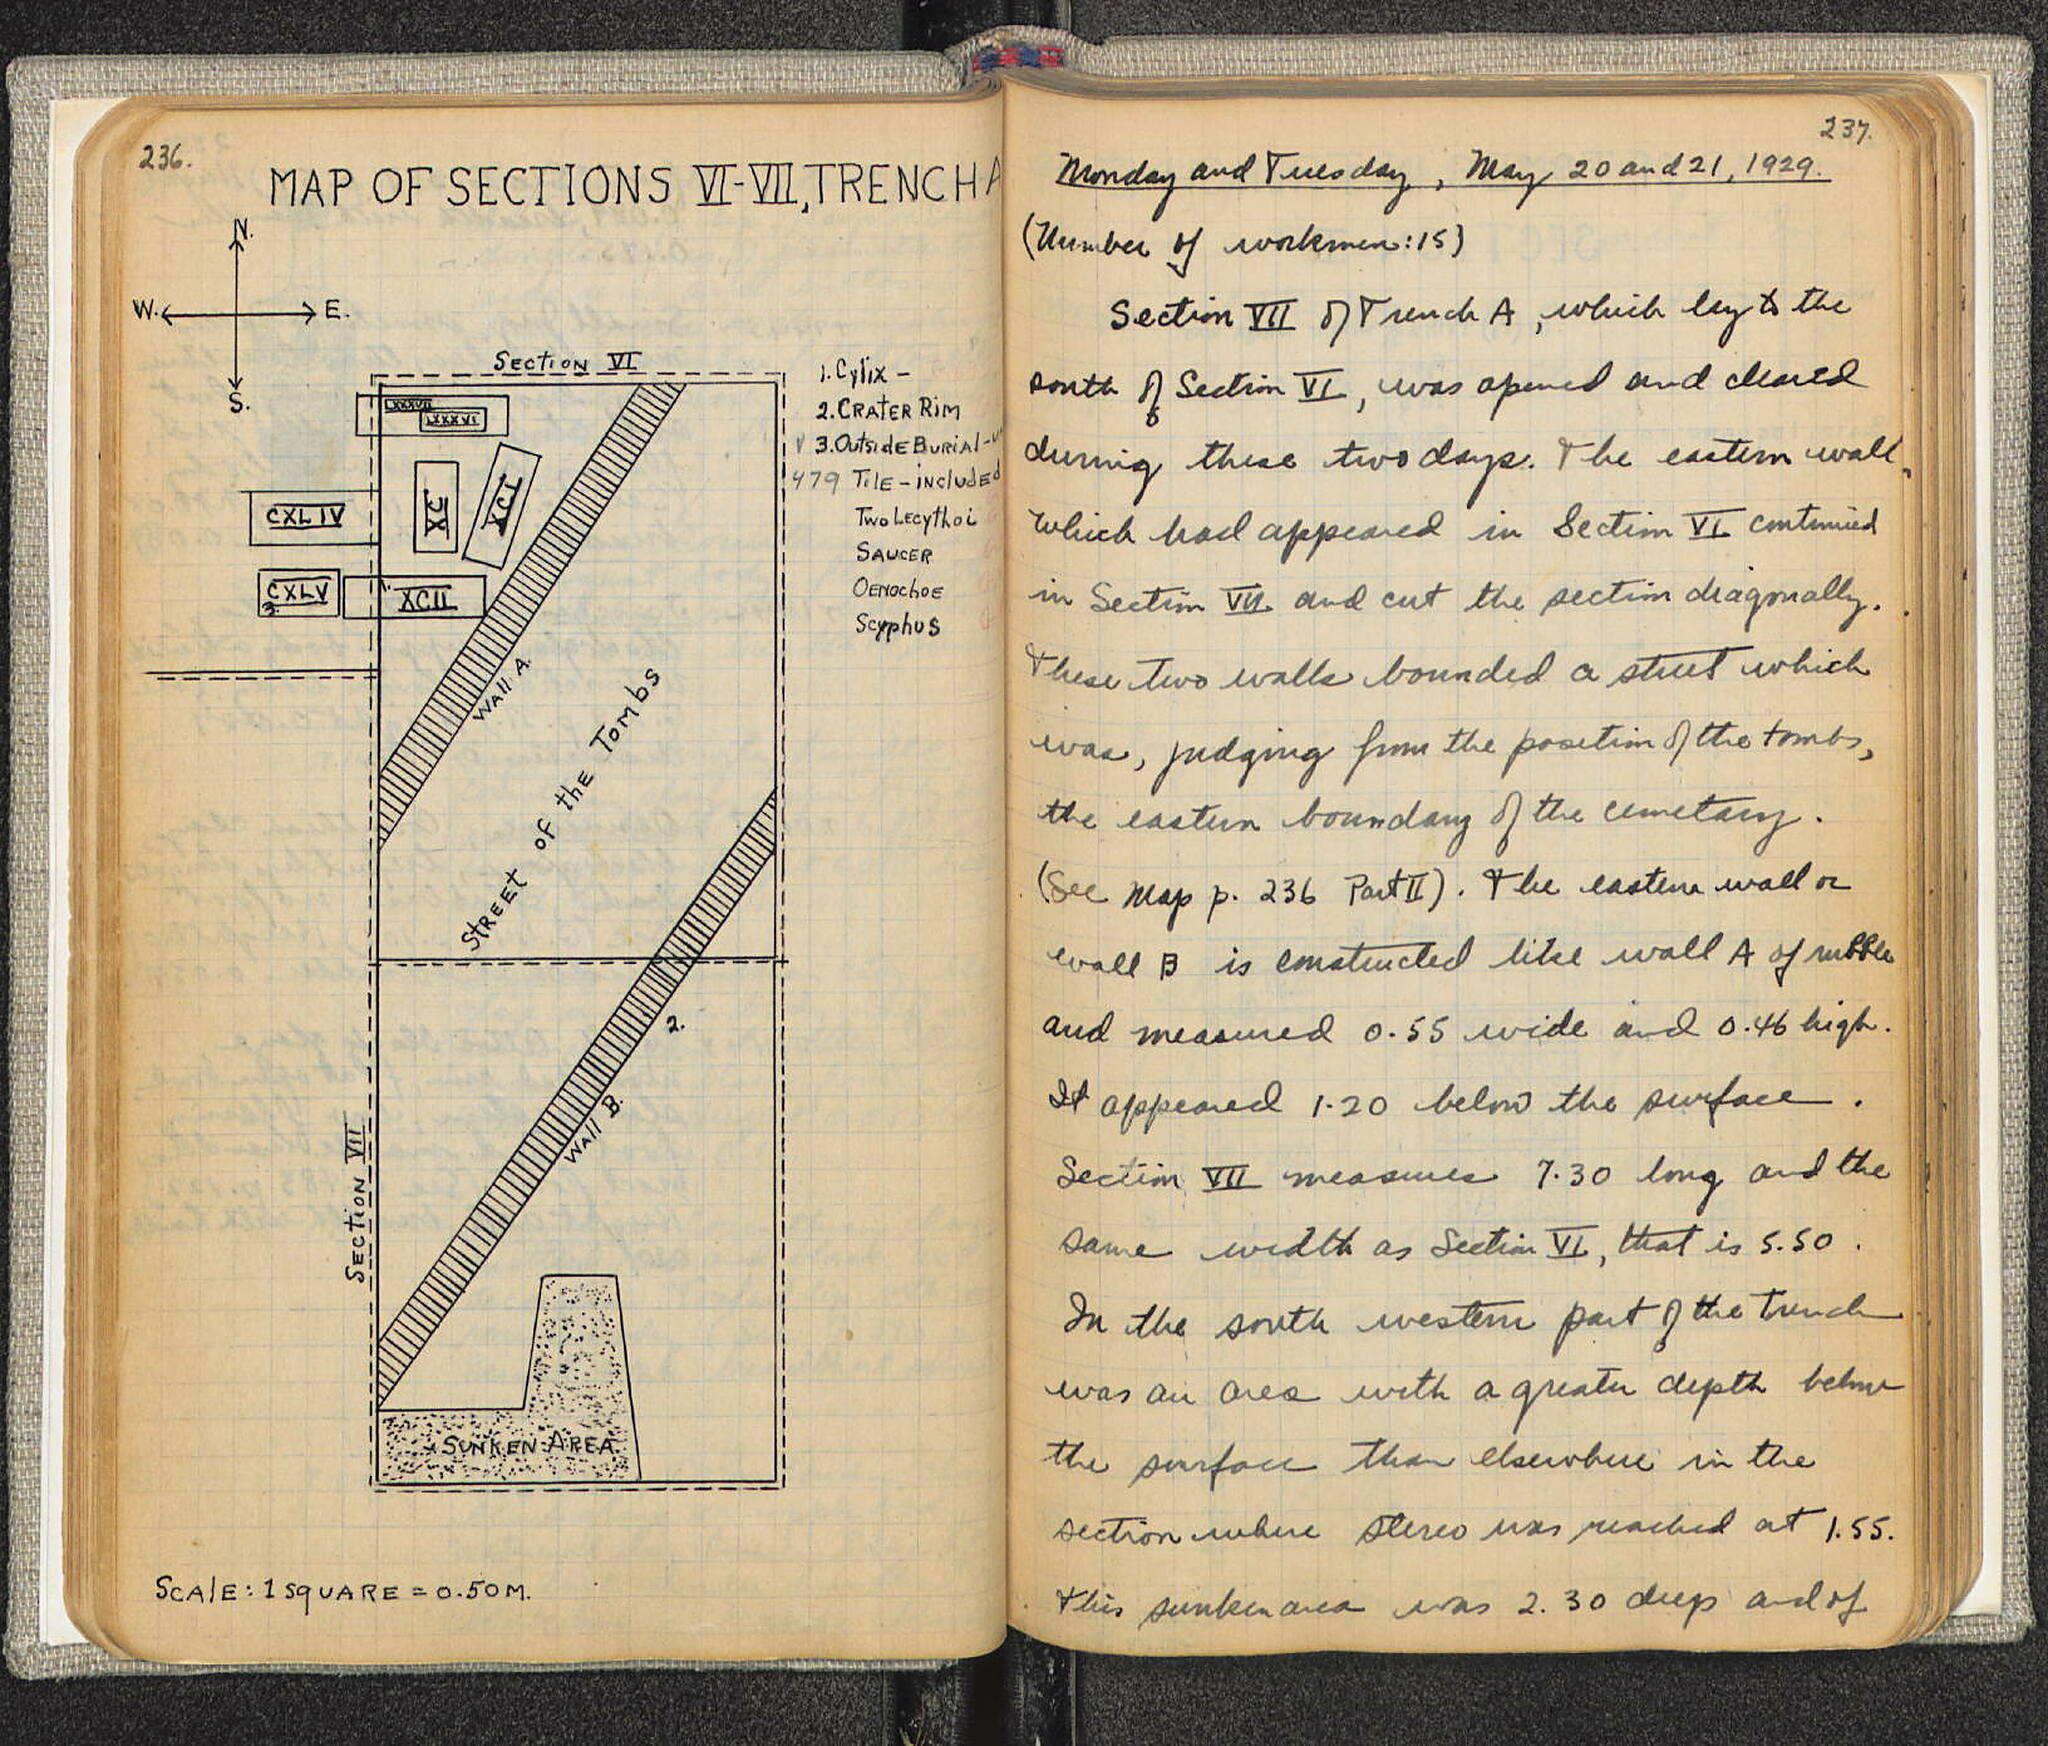 236.
MAP OF SECTIONS VI-VII, TRENCH A
N.
W. E.
S.
SECTION VI
1. Cylix -
2. CRATER RIM
3. OUTSIDE BURIAL-
479 TILE - INCLUDED
TWO LECYTHOI
SAUCER
OENOCHOE
SCYPHUS
LXXXVII
LXXXVI
XC
XCI
CXLIV
CXLV
3.
XCII
WALL A.
STREET OF the TOMBS
2.
WALL B.
SECTION VII
SUNKEN AREA
SCALE: 1 SQUARE = 0.50 M.
237.
Monday and Tuesday, May 20 and 21, 1929.
(Number of workmen: 15)
Section VII of Trench A, which lay to the
south of Section VI, was opened and cleared
during these two days. The eastern wall
which had appeared in Section VI continued
in Section VII and cut the section diagonally.
These two walls bounded a street which
was, judging from the position of the tombs,
the eastern boundary of the cemetary.
(See Map p. 236 Part II). The eastern wall or
wall B is constructed like wall A of rubble
and measured 0.55 wide and 0.46 high.
It appeared 1.20 below the surface.
Section VII measures 7.30 long and the
same width as Section VI, that is 5.50.
In the south western part of the trench
was an area with a greater depth below
the surface than elsewhere in the
section where stereo was reached at 1.55.
This sunken area was 2.30 deep and of